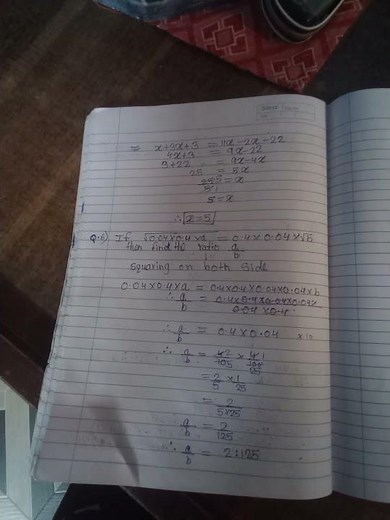 ⇒ x+3x+3 = 11x-2x-22
4x+3 = 9x-22
3+22 = 9x-4x
25 = 5x
5 = x
∴ x=5
Q.6) If √0.04×0.4×a = 0.4×0.04×√b
then find the ratio a/b
squaring on both side
0.04×0.4×a = 0.4×0.4×0.04×0.04×b
∴ a/b = 0.4×0.4×0.04×0.04/0.04×0.4
∴ a/b = 0.4×0.04
∴ a/b = 4/10 × 4/100
= 2/5 × 1/25
= 2/5×25
a/b = 2/125
∴ a/b = 2:125